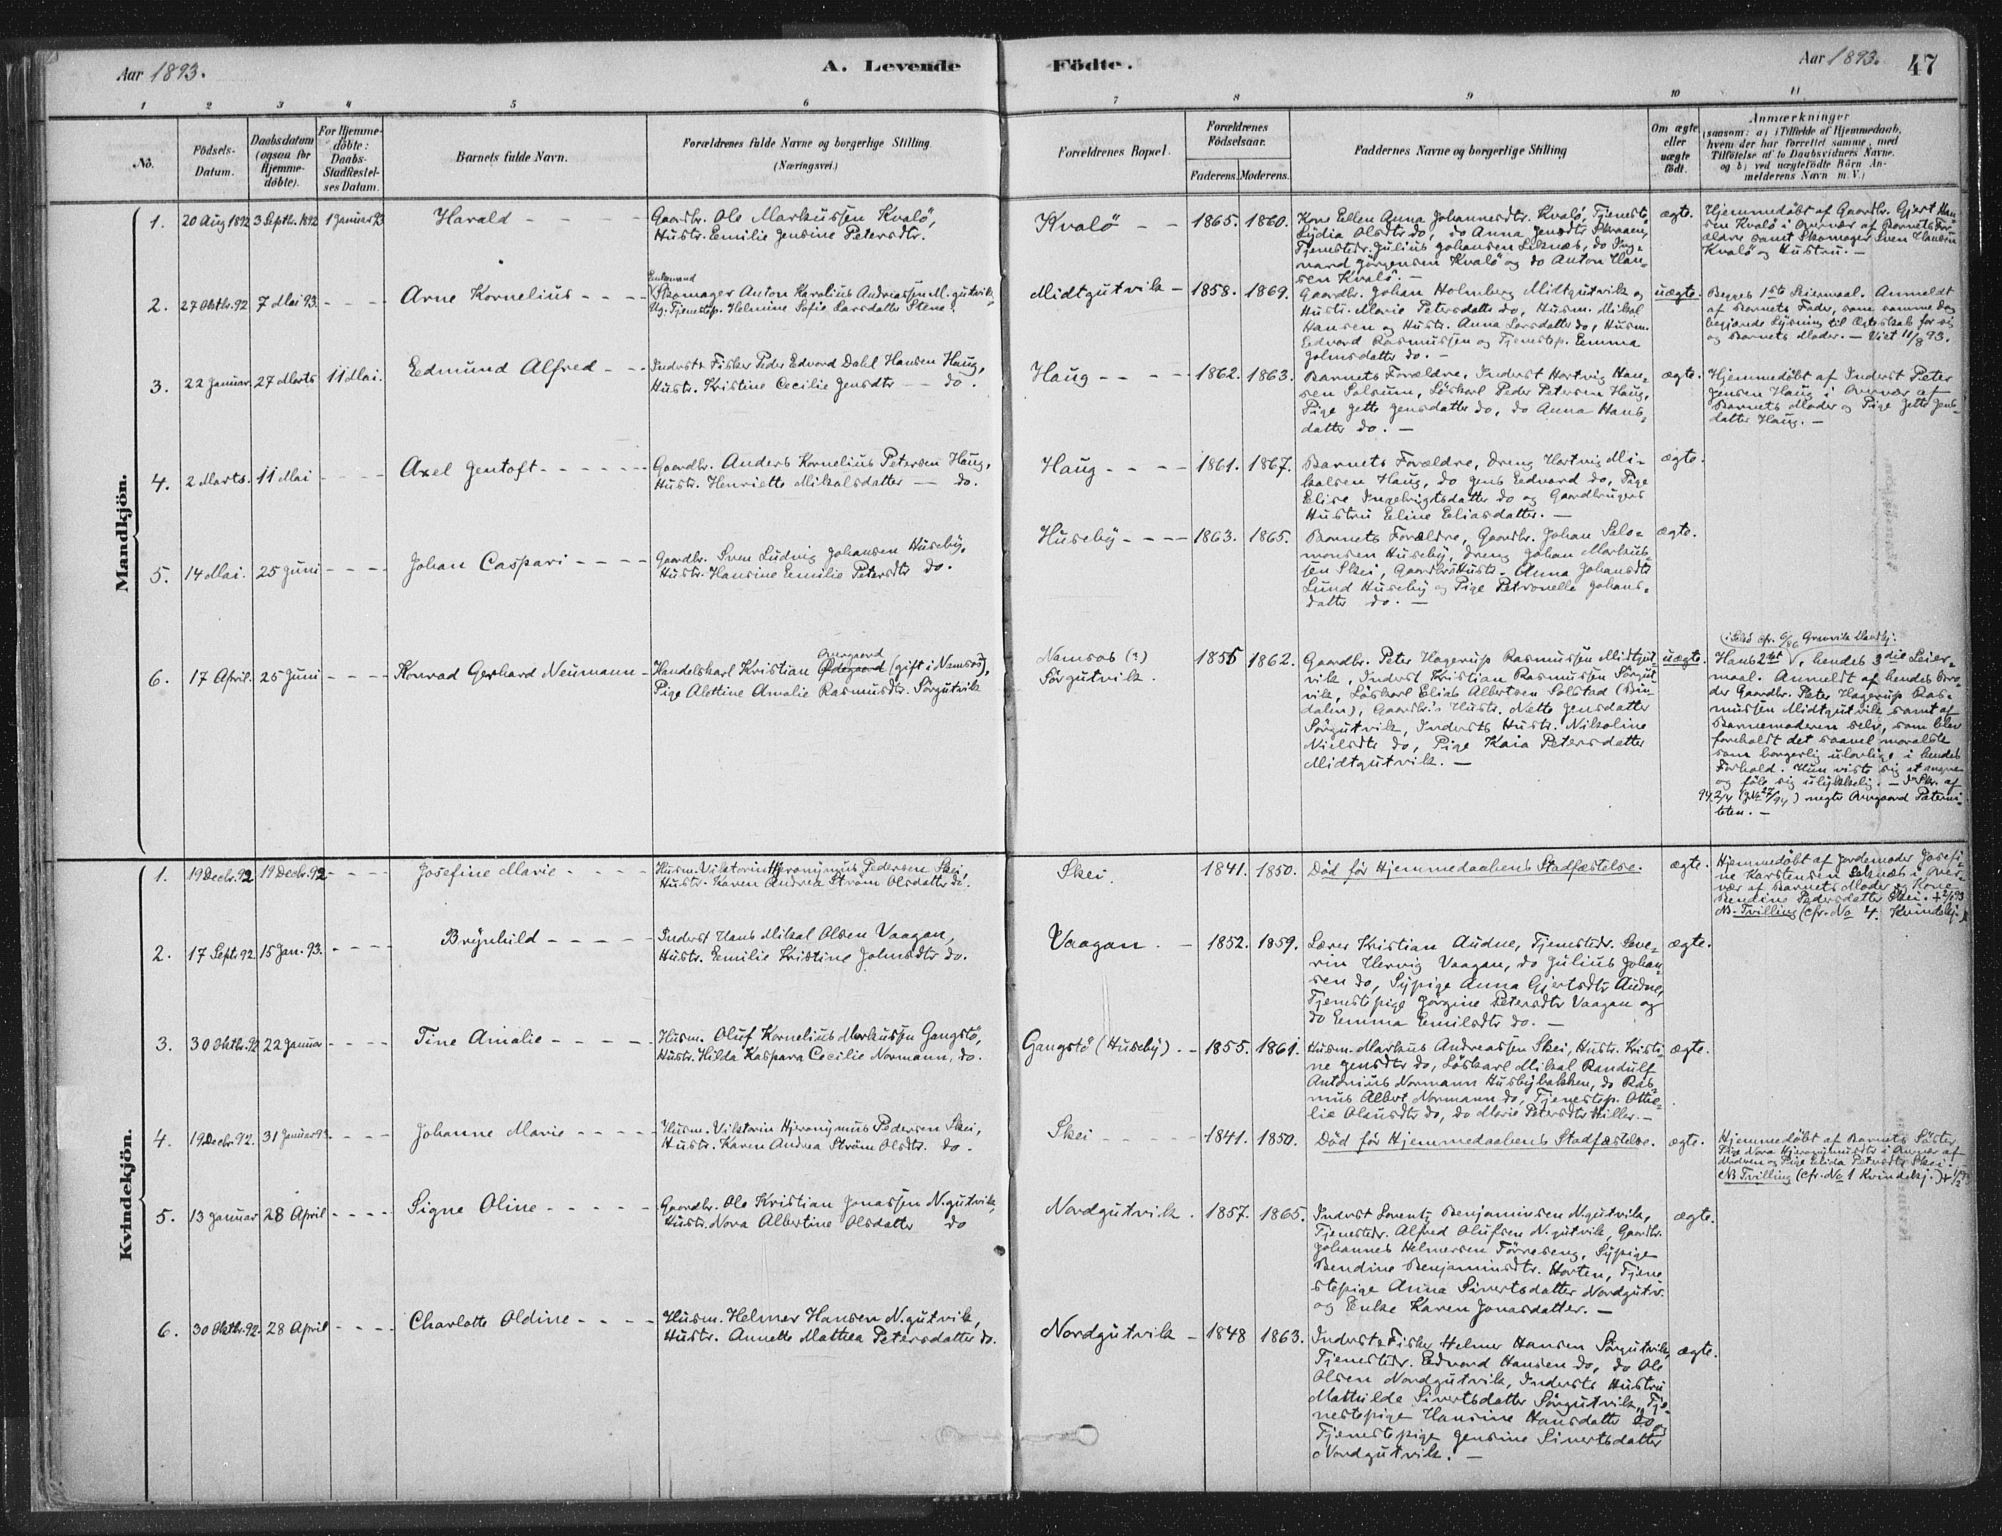 Aar 1893.
A. Levende
Födte.
Aar 1893.
47
1 2 3 4 5 6 7 8 9 10 11
No.
Födsels-
Datum.
Daabsdatum
(ogsaa for
Hjemme-
döbte).
For Hjemme-
döbte:
Daabs-
Stadfæstel-
ses Datum.
Barnets fulde Navn.
Forældrenes fulde Navne og borgerlige Stilling
(Næringsvei.)
Forældrenes Bopæl.
Forældrenes
Födselsaar.
Faderens. Moderens.
Faddernes Navne og borgerlige Stilling
Om ægte
eller
uægte
födt.
Anmærkninger
(saasom: a) i Tilfælde af Hjemmedaab,
hvem der har forrettet samme, med
Tilföielse af to Daabsvidners Navne.
og b) ved uægtefödte Börn An-
melderens Navn m. V.)
Mandkjön.
1. 20 Aug 1892 3 Septb. 1892 1 Januar 93
Harald
Gaardbr. Ole Markussen Kvalö,
Hustr. Emilie Jensine Petersdtr.
Kvalö
1865. 1860.
Kone Ellen Anna Johannesdtr. Kvalö, Tjeneste
Lydia Olsdtr do, do Anna Jensdtr Skraaen,
Tjenestedr. Julius Johansen Leknæs, do Ing-
vard Jörgensen Kvalö og do Anton Han-
sen Kvalö. —
ægte.
Hjemmedöbt af Gaardbr. Gjert Han-
sen Kvalö i Overvær af Barnets For-
ældre samt Skomager Sven Hansen
Kvalö og Hustru. —
2. 27 Oktbr. 92 7 Mai 93.
Arne Kornelius
Enkemand
Skomager Anton Karolius Andreassen M. gutvik,
Ug. Tjenestep. Helmine Sofie Larsdatter Stene.
Midtgutvik
1858. 1869.
Gaardbr. Johan Holmberg Midtgutvik og
Hustr. Marie Petersdatter do, Husm. Mikal
Hansen og Hustr. Anna Larsdatter do, Husm.
Edvard Rasmussen og Tjenestep. Emma
Johnsdatter do. —
uægte.
Begges 1ste Leiermaal. Anmeldt
af Barnets Fader, som samme Dag
begjærde Lysning til Ægteskab for sig
og Barnets Moder. — Viet 11/8 93.
3. 22 Januar 27 Marts 11 Mai.
Edmund Alfred
Inderst & Fisker Peder Edvard Dahl Hansen Haug,
Hustr. Kristine Cecilie Jensdtr — do.
Haug
1862. 1863.
Barnets Forældre, Inderst Hartvig Han-
sen Solsum, Löskarl Peder Petersen Haug,
Pige Jette Jensdatter do, do Anna Hans-
datter do. —
ægte.
Hjemmedöbt af Inderst Peter
Jensen Haug i Overvær af
Barnets Moder og Pige Jette Jens-
datter Haug. —
4. 2 Marts. 11 Mai
Axel Jentoft
Gaardbr. Anders Kornelius Petersen Haug,
Hustr. Henriette Mikalsdatter — do.
Haug
1861. 1867.
Barnets Forældre, Dreng Hartvig Mi-
kalsen Haug, do Jens Edvard do, Pige
Elise Ingebrigtsdatter do og Gaardbrugers
Hustru Eline Eliasdatter. —
ægte.
5. 14 Mai. 25 Juni
Johan Caspari
Gaardbr. Sven Ludvig Johansen Huseby,
Hustr. Hansine Emilie Petersdtr do.
Huseby
1863. 1865.
Barnets Forældre, Gaardbr. Johan Salo-
monsen Huseby, Dreng Johan Markus-
sen Skei, Gaardbrs Hustr. Anna Johansdtr
Lund Huseby og Pige Petronelle Johans-
datter do. —
ægte.
6. 17 April. 25 Juni
Konrad Gerhard Neumann
Aurgaard
Handelskarl Kristian Ödegaard (gift i Namsos),
Pige Alettine Amalie Rasmusdtr. Sörgutvik
Namsos (?)
Sörgutvik.
1855 1862.
Gaardbr. Peter Hagerup Rasmussen Midtgut-
vik, Inderst Kristian Rasmussen Sörgut-
vik, Löskarl Elias Albertsen Solstad (Bin-
dalen), Gaardbr's Hustr. Nette Jensdatter
Sörgutvik, Indersts Hustr. Nikoline
Nielsdtr do, Pige Kaia Petersdatter
Midtgutvik. —
uægte.
cfr. 6/86 Gravvik Mandkj.
Hans 2det, hendes 3die Leier-
maal. Anmeldt af hendes Bro-
der Gaardbr. Peter Hagerup Ras-
mussen Midtgutvik samt af
Barnemoderen selv, som blev
foreholdt det saavel moralsk
som borgerlig ulovlige i hendes
Forhold. Hun viste sig at angre
og föle sig ulykkelig. — I Skr. af
94 2/4 (JNo 27/94) negter Aurgaard Paterni-
teten. —
Kvindekjön.
1. 19 Decbr. 92 19 Decbr. 92
Josefine Marie
Husm. Viktorin Hjeronymus Pedersen Skei,
Hustr. Karen Andrea Ström Olsdatter do.
Skei.
1841. 1850.
Död för Hjemmedaabens Stadfæstelse.
ægte.
Hjemmedöbt af Jordemoder Josefi-
ne Karstensen Leknæs i Over-
vær af Barnets Moder og Kone
Bendine Pedersdatter Skei. + 2/1 93
NB. Tvilling (cfr. No 4. Kvindekj.)
2. 17 Septr. 92 15 Jan. 93.
Brynhild
Inderst Hans Mikal Olsen Vaagan,
Hustr. Emilie Kristine Johnsdtr do.
Vaagan.
1852. 1859.
Lærer Kristian Audne, Tjenestedr. Seve-
rin Hervig Vaagan, do Julius Johan-
sen do, Sypige Anna Gjertsdtr Audne,
Tjenestepige Jörgine Petersdtr Vaagan og
do Emma Emilsdtr do. —
ægte.
3. 30 Oktbr. 92 22 Januar
Tine Amalie
Husm. Oluf Kornelius Markussen Gangstö,
Hustr. Hilda Kaspara Cecilie Normann, do.
Gangstö (Huseby).
1855. 1861.
Husm. Markus Andreassen Skei, Hustr. Kristi-
ne Jensdtr do, Löskarl Mikal Randulf
Antonius Normann Husbybakken, do Ras-
mus Albert Normann do, Tjenestep. Otte-
lie Olausdtr do, do Marie Petersdtr Hiller. —
ægte.
4. 19 Decbr. 92. 31 Januar 93.
Johanne Marie
Husm. Viktorin Hjeronymus Pedersen Skei,
Hustr. Karen Andrea Ström Olsdtr. do.
Skei
1841. 1850.
Död för Hjemmedaabens Stadfæstelse.
ægte.
Hjemmedöbt af Barnets Söster,
Pige Nora Hjeronymusdtr i Overvær af
Modren og Pige Elida Petersdtr Skei.
NB Tvilling (cfr. No 1 Kvindekj.)
5. 13 Januar 28 April
Signe Oline
Gaardbr. Ole Kristian Jonassen N. gutvik,
Hustr. Nora Albertine Olsdatter do
Nordgutvik.
1857. 1865.
Inderst Lorents Benjaminsen N. gutvik,
Tjenestedr. Alfred Olufsen N. gutvik, Gaardbr.
Johannes Helmersen Förreseng, Sypige
Bendine Benjaminsdtr. Horten, Tjene-
stepige Anna Sivertsdatter Nordgutv.
og Enke Karen Jonasdatter. —
ægte.
6. 30 Oktbr. 92. 28 April
Charlotte Oldine
Husm. Helmer Hansen N. gutvik,
Hustr. Annette Mathea Petersdatter do.
Nordgutvik
1848 1863.
Inderst & Fisker Helmer Hansen Sörgutvik,
Tjenestedr. Edvard Hansen do, do Ole
Olsen Nordgutvik, Indersts Hustru
Mathilde Sivertsdatter Sörgutvik, Tje-
nestepige Hansine Hansdatter do og
Tjenestepige Jensine Sivertsdatter
Nordgutvik. —
ægte.